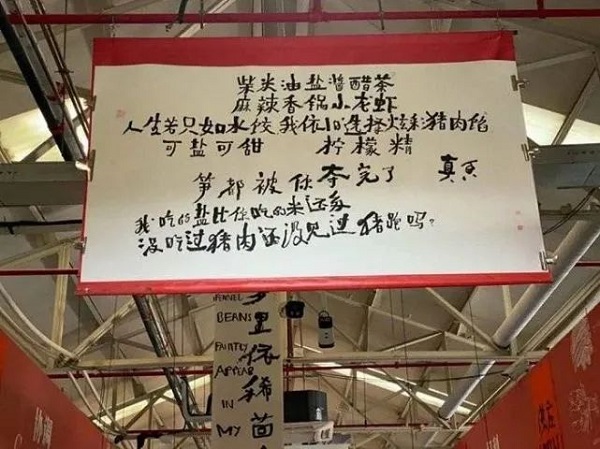 柴米油盐酱醋茶
麻辣香锅小龙虾
人生若只如水饺 我依旧选择炫彩猪肉馅
可盐可甜 柠檬精
笋都被你夺完了 真
我吃的盐比你吃的米还多
没吃过猪肉还没见过猪跑吗?
BEANS
FAINTLY
APPEAR
IN
MY
里依稀茴